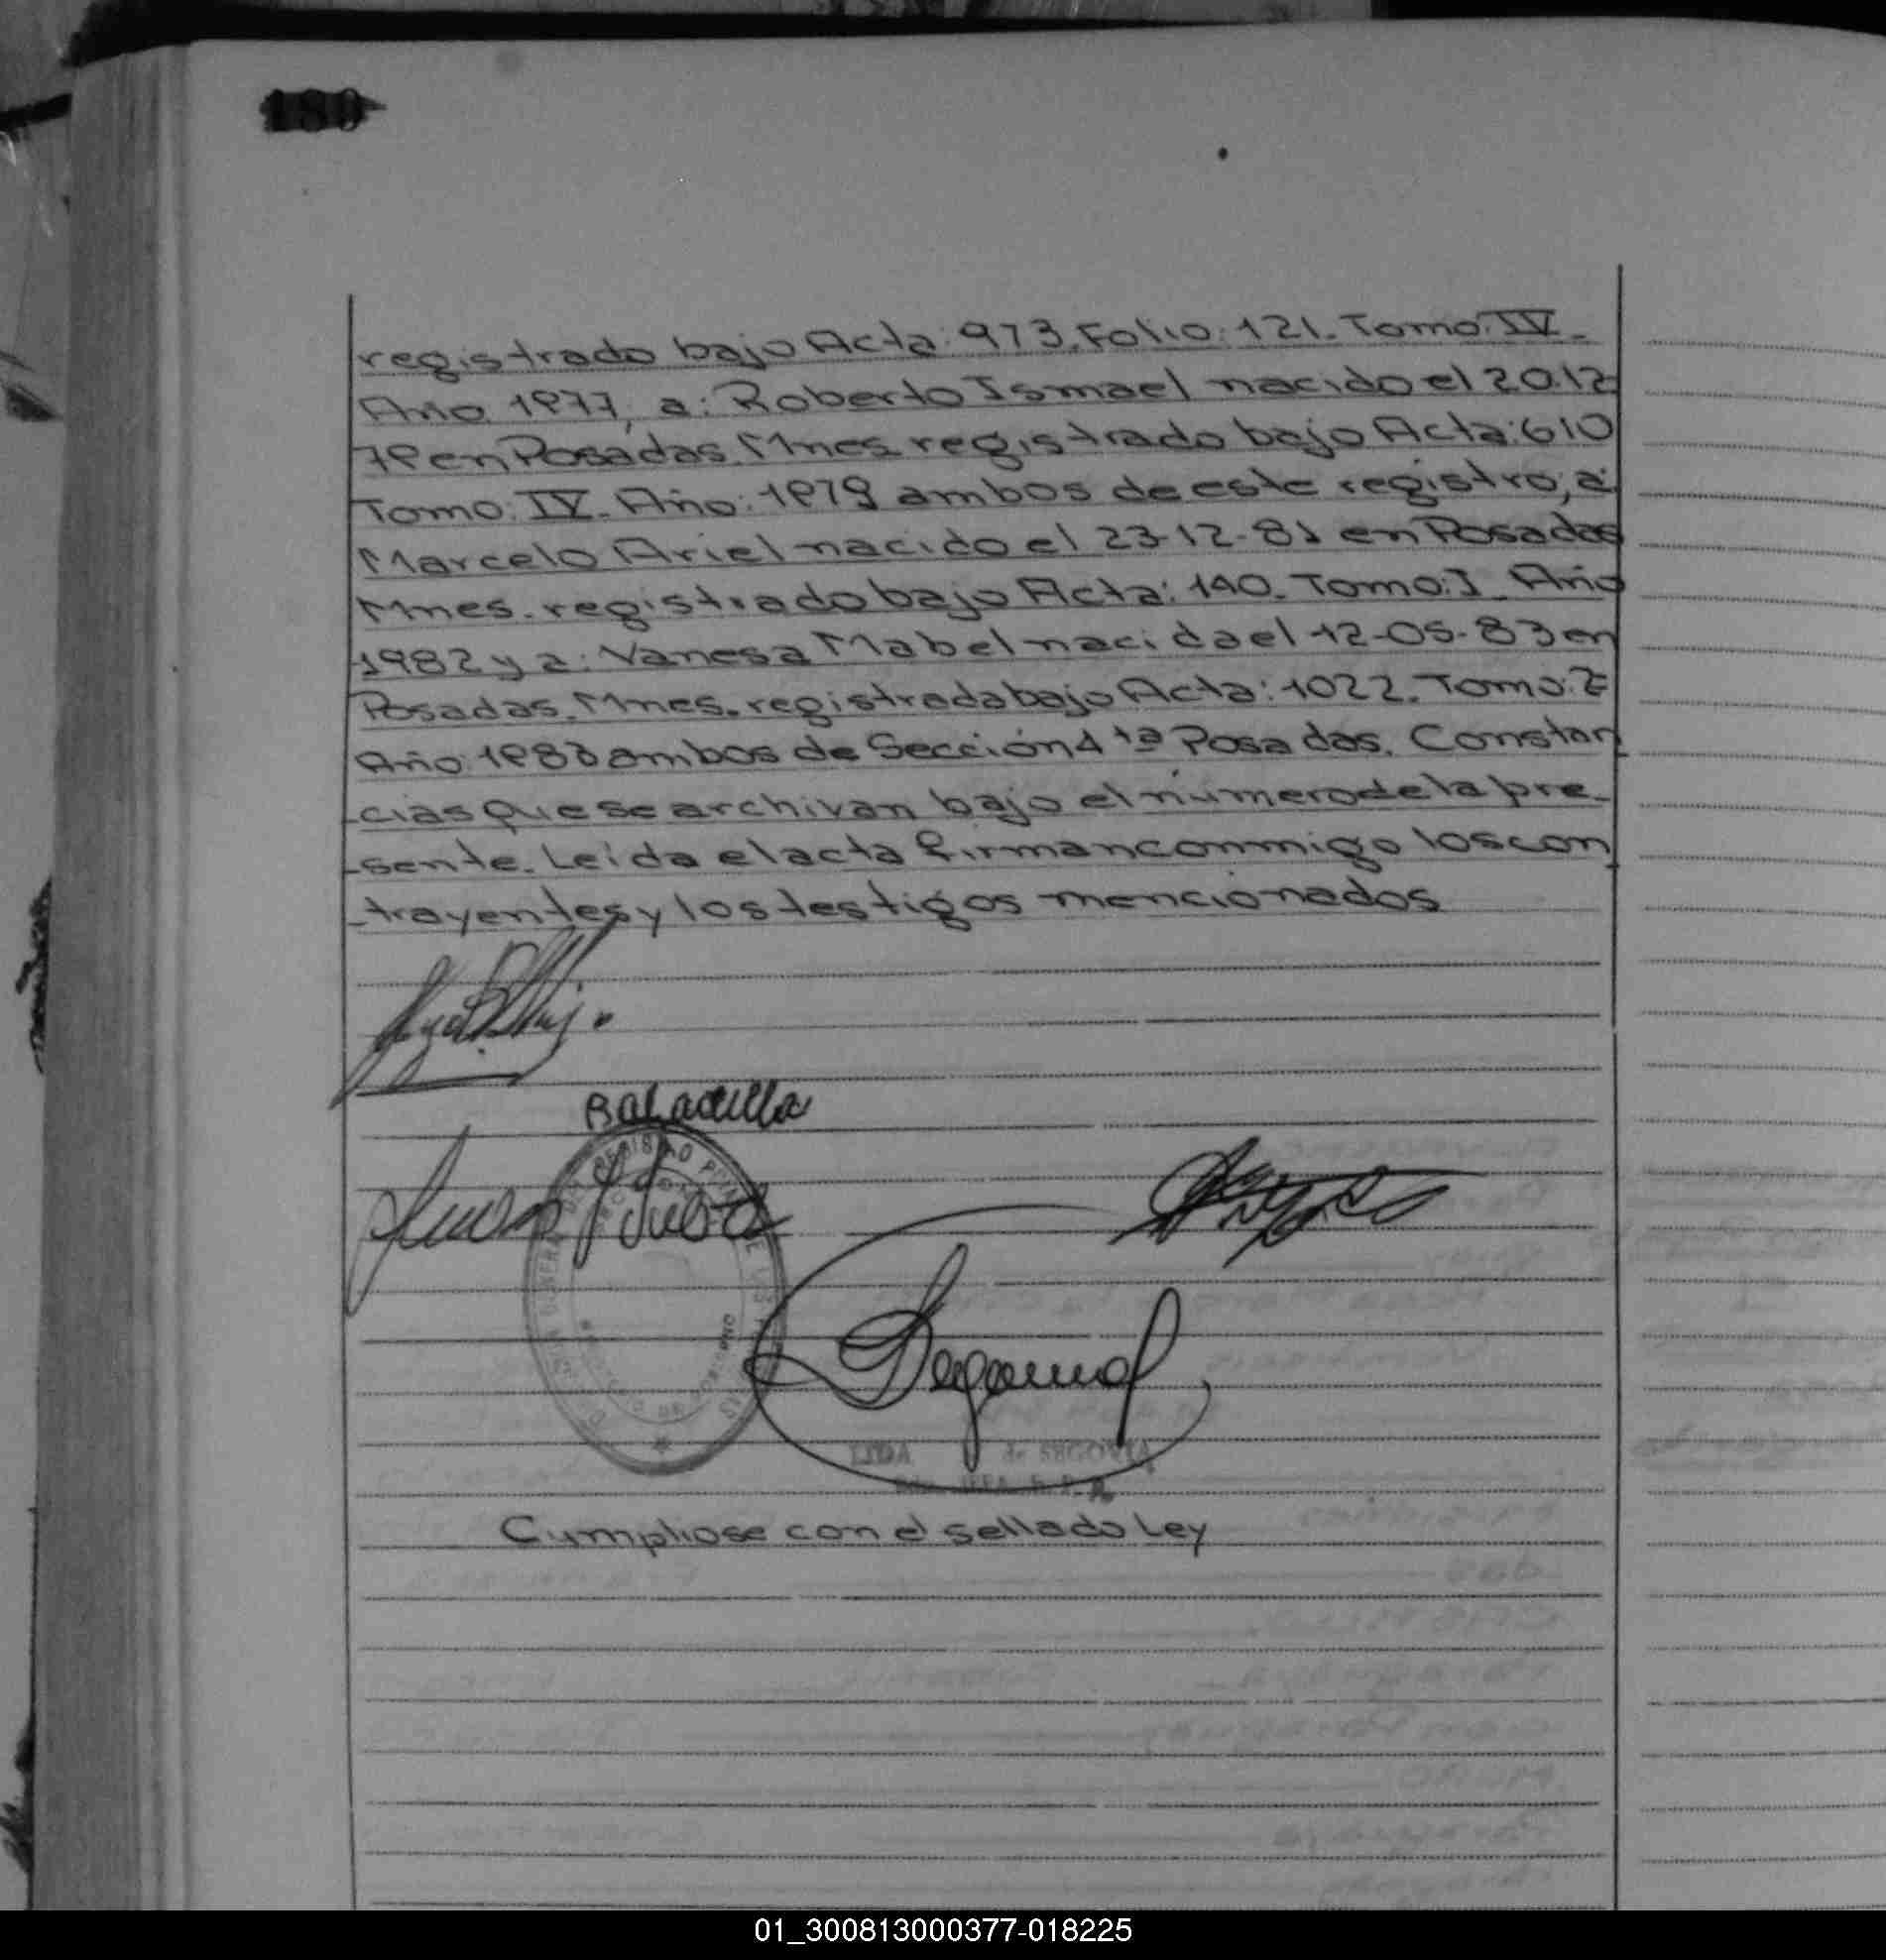 180
registrado bajo Acta: 973. Folio: 121. Tomo: IV.
Año 1977, a: Roberto Ismael nacido el 20.12
79 en Posadas. Mnes. registrado bajo Acta: 610
Tomo: IV. Año: 1979 ambos de este registro; a:
Marcelo Ariel nacido el 23-12-81 en Posadas
Mnes. registrado bajo Acta: 140. Tomo: I. Año
1982 y a: Vanesa Mabel nacida el 12-05-83 en
Posadas. Mnes. registrada bajo Acta: 1022. Tomo: 2
Año 1983 ambos de Sección 4ta Posadas. Constan
cias que se archivan bajo el número de la pre-
sente. Leída el acta firman conmigo los con
trayentes y los testigos mencionados
LYDA de SEGOVIA
JEFA
Cumpliose con el sellado Ley
01_300813000377-018225